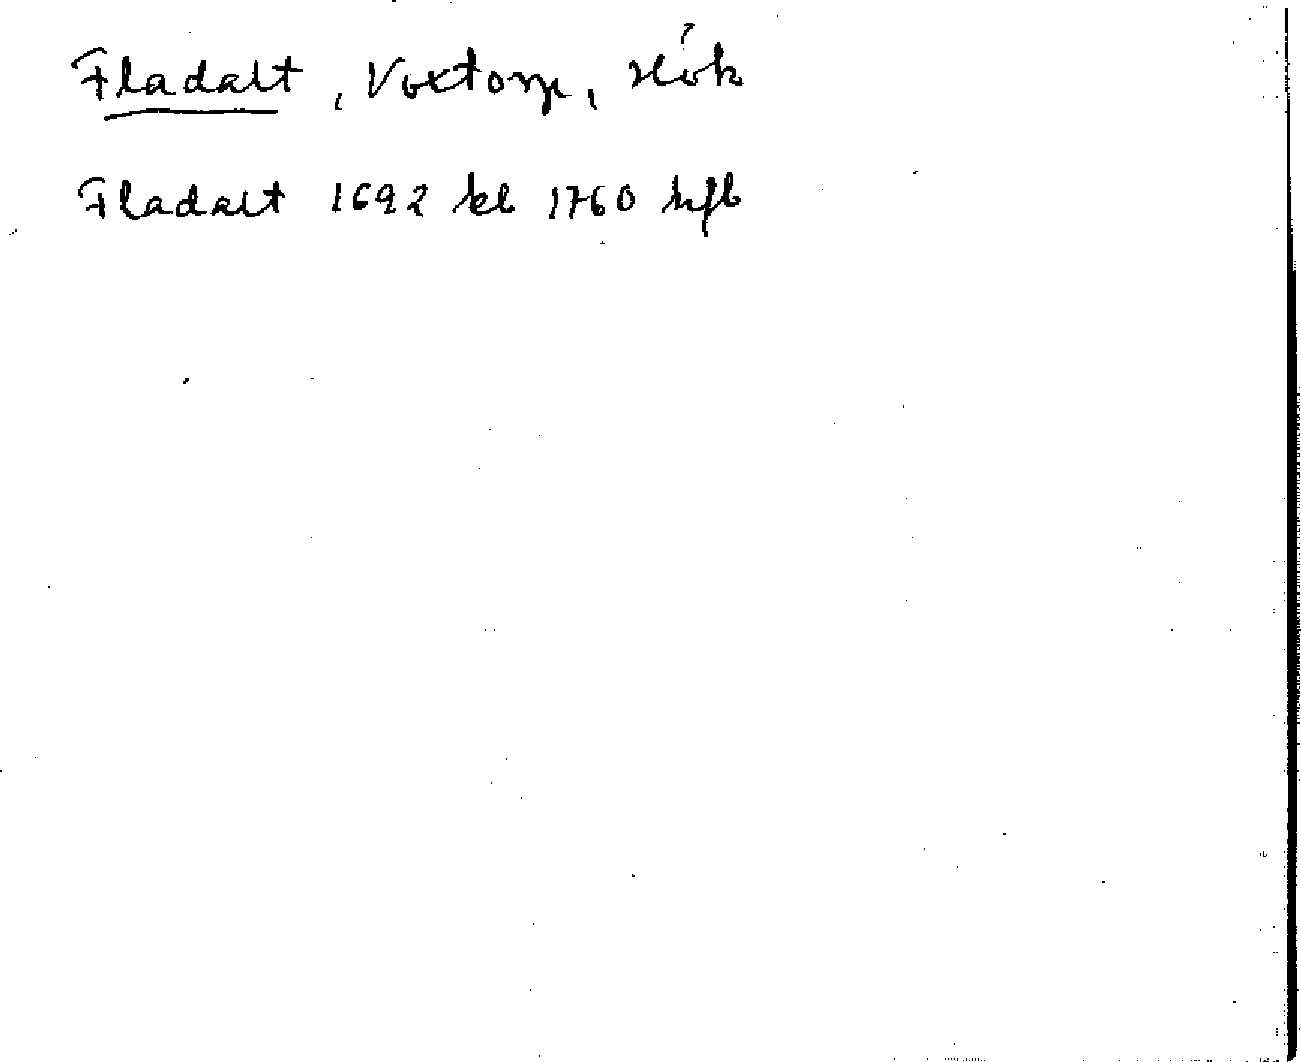 Fladalt, Voxtorp, Hök
Fladalt 1692 kb 1760 hfl